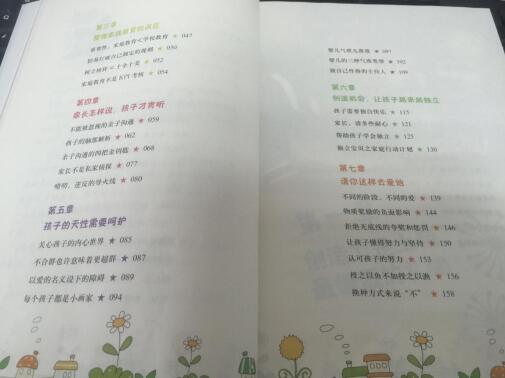 第三章
重智型:家庭教育<学校教育 ★ 047
轻易打破自己制定的规则 ★ 050
树立榜样≠十全十美 ★ 052
家庭教育不是KPI考核 ★ 054
第四章
家长怎样说,孩子才肯听
不能被忽视的亲子沟通 ★ 059
孩子的脑部解析 ★ 062
亲子沟通的四把金钥匙 ★ 068
家长不是私家侦探 ★ 077
唠叨,逆反的导火线 ★ 080
第五章
孩子的天性需要呵护
关心孩子的内心世界 ★ 085
不合群也许意味着更超群 ★ 087
以爱的名义设下的障碍 ★ 089
每个孩子都是小画家 ★ 094
婴儿气质九维度 ★ 097
婴儿的三种气质类型 ★ 102
做自己性格的主持人 ★ 109
第六章
创造机会,让孩子越来越独立
孩子需要独自快乐 ★ 115
家长,请多些耐心 ★ 121
帮助孩子学会独立 ★ 125
独立宝贝之家庭行动计划 ★ 130
第七章
请你这样去爱他
不同的阶段,不同的爱 ★ 139
物质奖励的负面影响 ★ 144
拒绝无底线的夸奖和惩罚 ★ 147
让孩子懂得努力与坚持 ★ 150
认可孩子的努力 ★ 153
授之以鱼不如授之以渔 ★ 156
换种方式来说“不” ★ 158